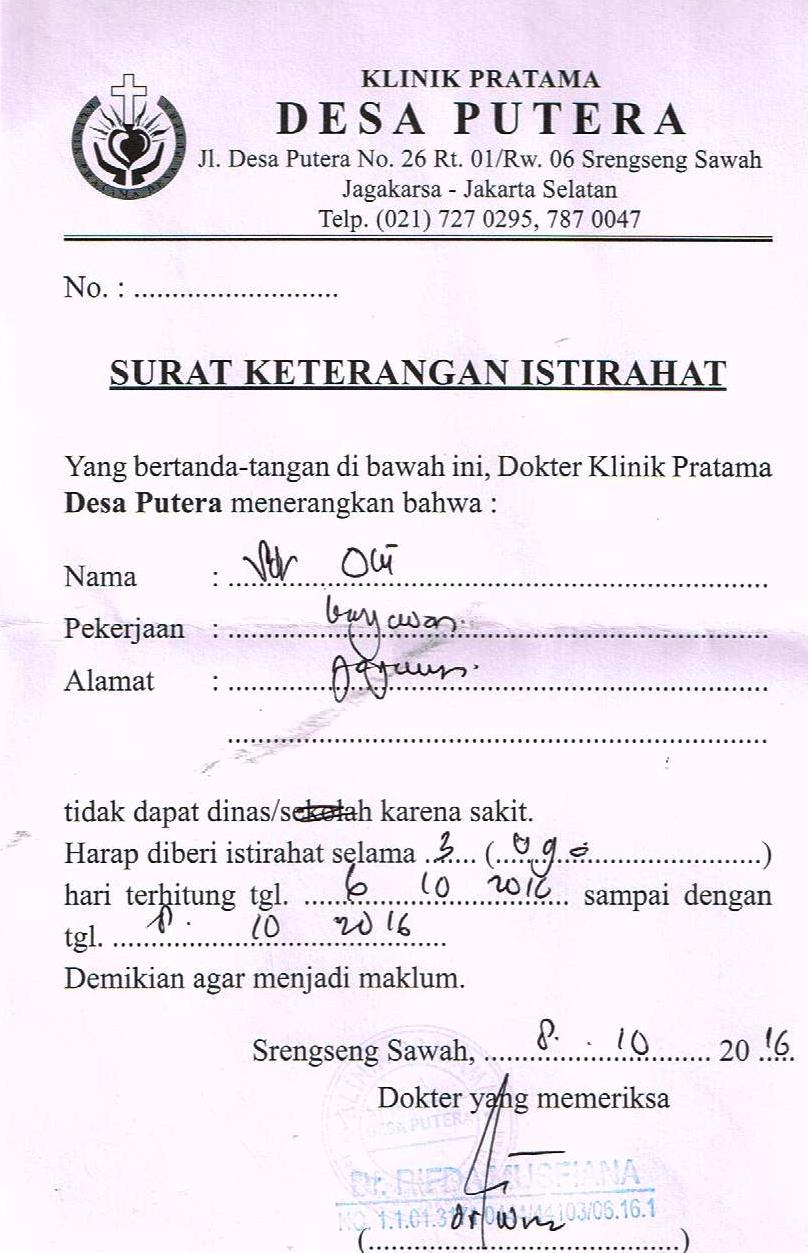 KLINIK PRATAMA
DESA PUTERA
Jl. Desa Putera No. 26 Rt. 01/Rw. 06 Srengseng Sawah
Jagakarsa - Jakarta Selatan
Telp. (021) 727 0295, 787 0047
No. : ...........................
SURAT KETERANGAN ISTIRAHAT
Yang bertanda-tangan di bawah ini, Dokter Klinik Pratama
Desa Putera menerangkan bahwa :
Nama :
Pekerjaan : karyawan
Alamat :
tidak dapat dinas/sekolah karena sakit.
Harap diberi istirahat selama 3 (tiga)
hari terhitung tgl. 6 10 2016 sampai dengan
tgl. 8 10 2016
Demikian agar menjadi maklum.
Srengseng Sawah, 8 . 10 20 16.
Dokter yang memeriksa
DESA PUTERA